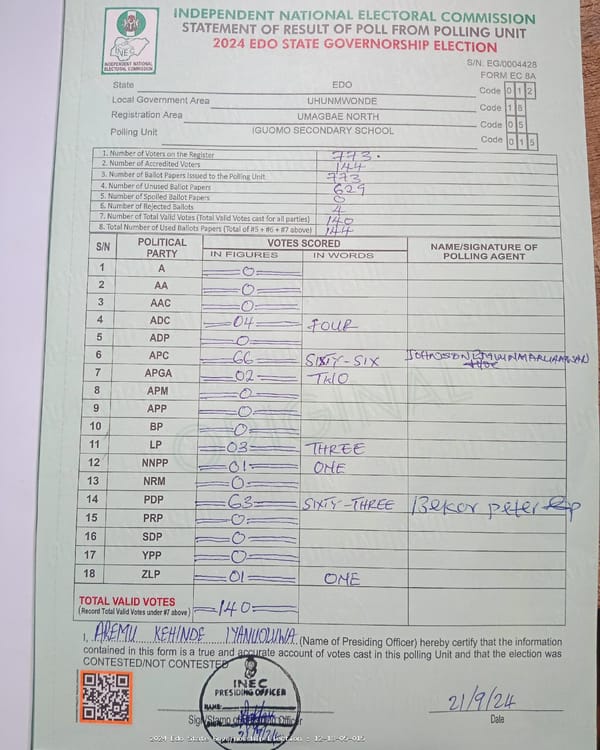 INDEPENDENT NATIONAL ELECTORAL COMMISSION
STATEMENT OF RESULT OF POLL FROM POLLING UNIT
2024 EDO STATE GOVERNORSHIP ELECTION
INEC
INDEPENDENT NATIONAL ELECTORAL COMMISSION
S/N. EG/0004428
FORM EC 8A
State EDO Code 0 1 2
Local Government Area UHUNMWONDE Code 1 8
Registration Area UMAGBAE NORTH Code 0 5
Polling Unit IGUOMO SECONDARY SCHOOL Code 0 1 5
1. Number of Voters on the Register 773
2. Number of Accredited Voters 144
3. Number of Ballot Papers Issued to the Polling Unit 773
4. Number of Unused Ballot Papers 629
5. Number of Spoiled Ballot Papers 0
6. Number of Rejected Ballots 4
7. Number of Total Valid Votes (Total Valid Votes cast for all parties) 140
8. Total Number of Used Ballots Papers (Total of #5 + #6 + #7 above) 144
S/N POLITICAL PARTY VOTES SCORED NAME/SIGNATURE OF POLLING AGENT
IN FIGURES IN WORDS
1 A 0
2 AA 0
3 AAC 0
4 ADC 04 FOUR
5 ADP 0
6 APC 66 SIXTY-SIX
7 APGA 02 TWO
8 APM 0
9 APP 0
10 BP 0
11 LP 03 THREE
12 NNPP 01 ONE
13 NRM 0
14 PDP 63 SIXTY-THREE peter
15 PRP 0
16 SDP 0
17 YPP 0
18 ZLP 01 ONE
ORIGINAL
TOTAL VALID VOTES
(Record Total Valid Votes under #7 above) 140
I, AREMU KEHINDE IYANUOLUWA (Name of Presiding Officer) hereby certify that the information
contained in this form is a true and accurate account of votes cast in this polling Unit and that the election was
CONTESTED/NOT CONTESTED
INEC
PRESIDING OFFICER
NAME:
Sign/Stamp of Officer
21/9/24
21/9/24
Date
2024 Edo State Governorship Election : 12-18-05-015